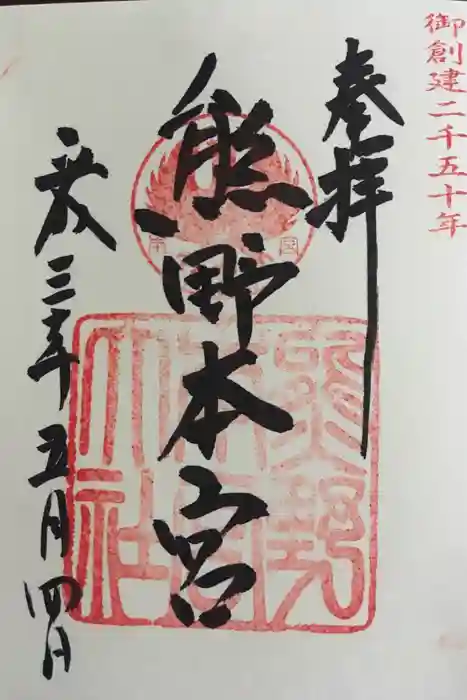 御創建二千五十年
奉拝
熊野本宮
平成三十年五月四日
熊野本宮大社